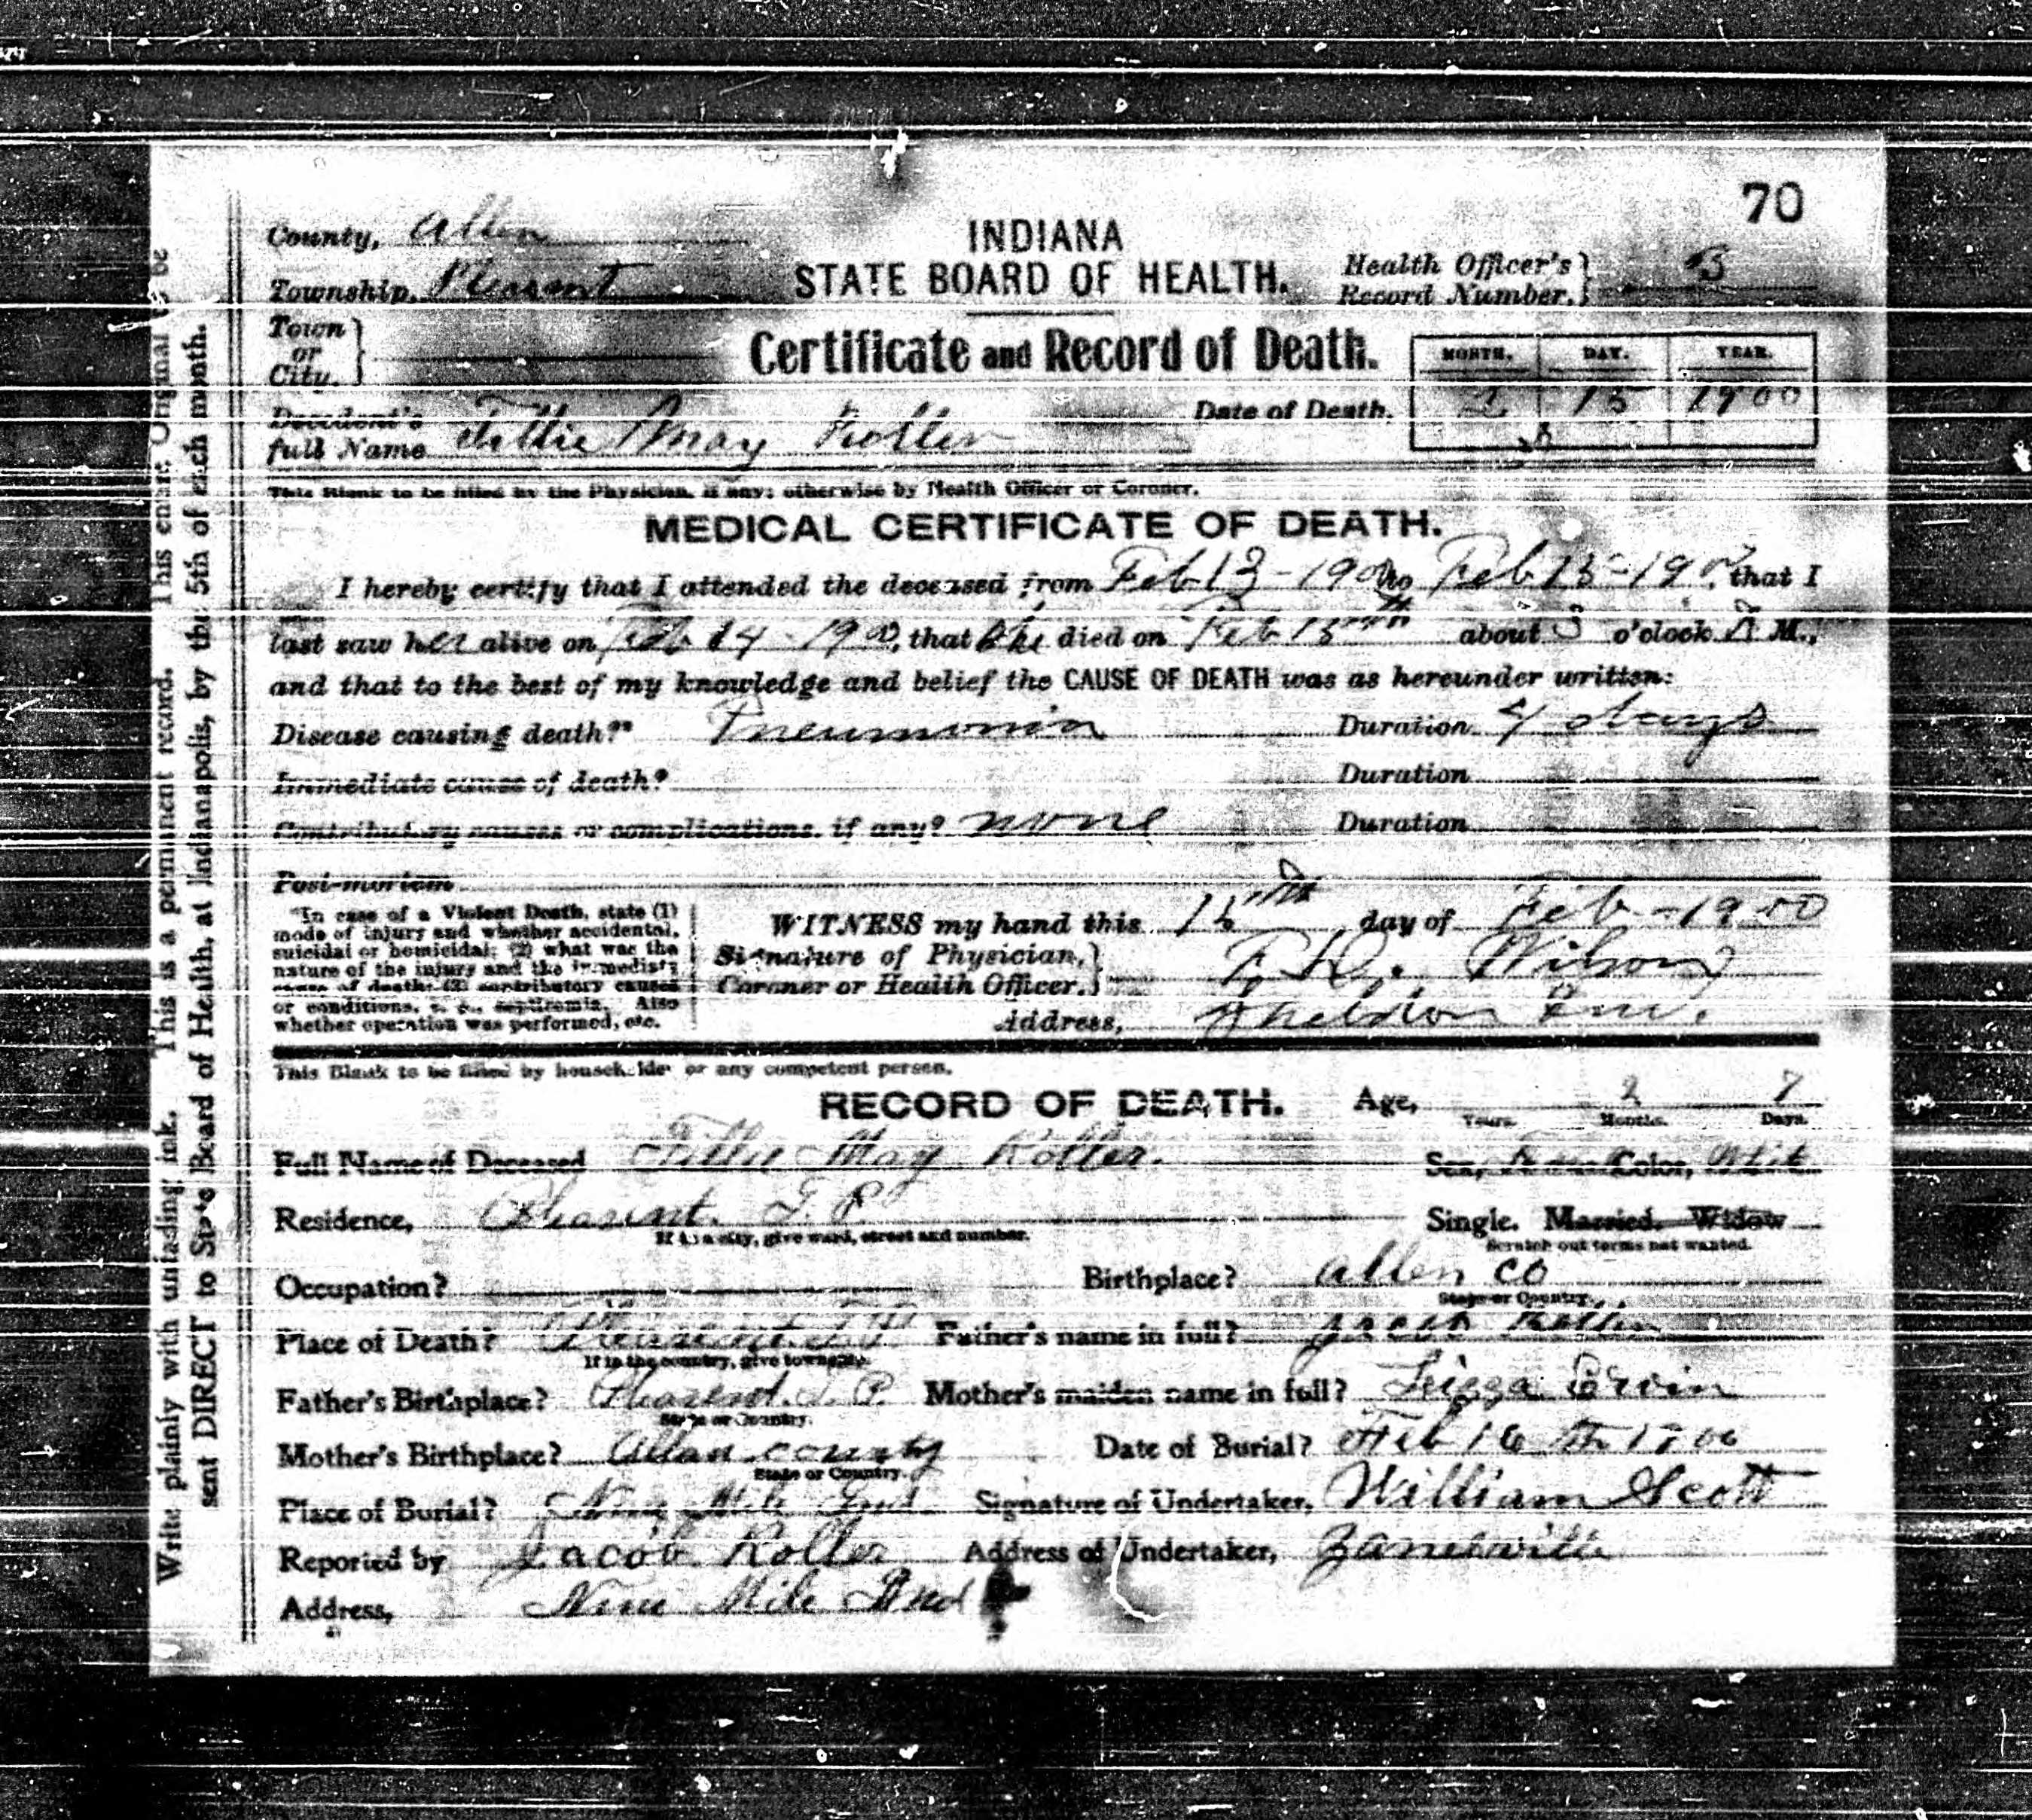 70
County, Allen
INDIANA
STATE BOARD OF HEALTH.
Health Officer's Record Number.
Township, Pleasant
Town or City.
Certificate and Record of Death.
MONTH. DAY. YEAR.
Date of Death. 2 15 1900
Decedent's full Name Tillie May Koller
This Blank to be filled by the Physician, if any; otherwise by Health Officer or Coroner.
MEDICAL CERTIFICATE OF DEATH.
I hereby certify that I attended the deceased from Feb 13 - 1900 to Feb 15 - 190 , that I
last saw her alive on Feb 14 - 1900, that she died on Feb 15th about 3 o'clock A M.,
and that to the best of my knowledge and belief the CAUSE OF DEATH was as hereunder written:
Disease causing death?* Pneumonia Duration 4 days
Immediate cause of death? Duration
Contributory causes or complications, if any? none Duration
Post-mortem
*In case of a Violent Death, state (1)
mode of injury and whether accidental,
suicidal or homicidal; (2) what was the
nature of the injury and the immediate
cause of death; (3) contributory causes
or conditions, e. g., septicemia. Also
whether operation was performed, etc.
WITNESS my hand this 15th day of Feb - 1900
Signature of Physician, Coroner or Health Officer. Wilson
Address, Sheldon Ind.
This Blank to be filled by householder or any competent person.
RECORD OF DEATH.
Age, 2 7
Years. Months. Days.
Full Name of Deceased Tillie May Koller. Sex, Fem Color, Whit
Residence, Pleasent. T. P. Single. Married. Widow
If in a city, give ward, street and number. Scratch out terms not wanted.
Occupation? Birthplace? Allen co
State or Country.
Place of Death? Pleasent. T P Father's name in full? Jacob Koller
If in the country, give township.
Father's Birthplace? Pleasent. T. P. Mother's maiden name in full? Lizza Ervin
State or Country.
Mother's Birthplace? Allan county Date of Burial? Feb 16 th 1900
State or Country.
Place of Burial? Nine Mile Ind Signature of Undertaker, William Scott
Reported by Jacob Koller Address of Undertaker, Zanesville
Address, Nine Mile Ind
Write plainly with unfading ink. This is a permanent record. This entire Original to be
sent DIRECT to State Board of Health, at Indianapolis, by the 5th of each month.